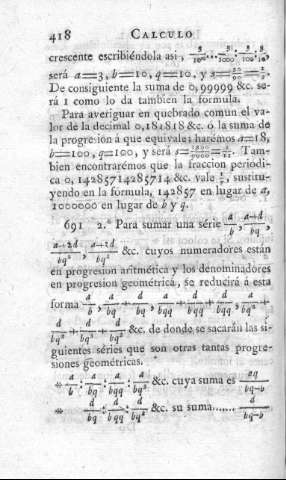 418 CALCULO
crescente escribiéndola asi,
será a=3, b=10, q=10, y s=
De consiguiente la suma de 0,99999 &c. se-
rá 1 como lo da tambien la formula.
Para averiguar en quebrado comun el va-
lor de la decimal 0,181818 &c. ó la suma de
la progresion á que equivale: harémos a=18,
b=100, q=100, y será s=1800/9900=2/11. Tam-
bien encontrarémos que la fraccion periódi-
ca 0, 14285714285714 &c. vale 1/7, sustitu-
yendo en la fórmula, 142857 en lugar de a,
1000000 en lugar de b y q.
691 2.° Para sumar una série a/b, a+d/bq,
a+2d/bq², &c. cuyos numeradores están
en progresion aritmética y los denominadores
en progresion geométrica, se reducirá á esta
forma a/b, a/bq + d/bq, a/bqq + d/bqq + d/bqq, a/bq³ +
d/bq³ + d/bq³ + d/bq³ &c. de donde se sacarán las si-
guientes séries que son otras tantas progre-
siones geométricas.
∺ a/b : a/bq : a/bqq : a/bq³ &c. cuya suma es aq/bq-b
∺ d/bq : d/bqq : d/bq³ &c. su suma....... d/bq-b